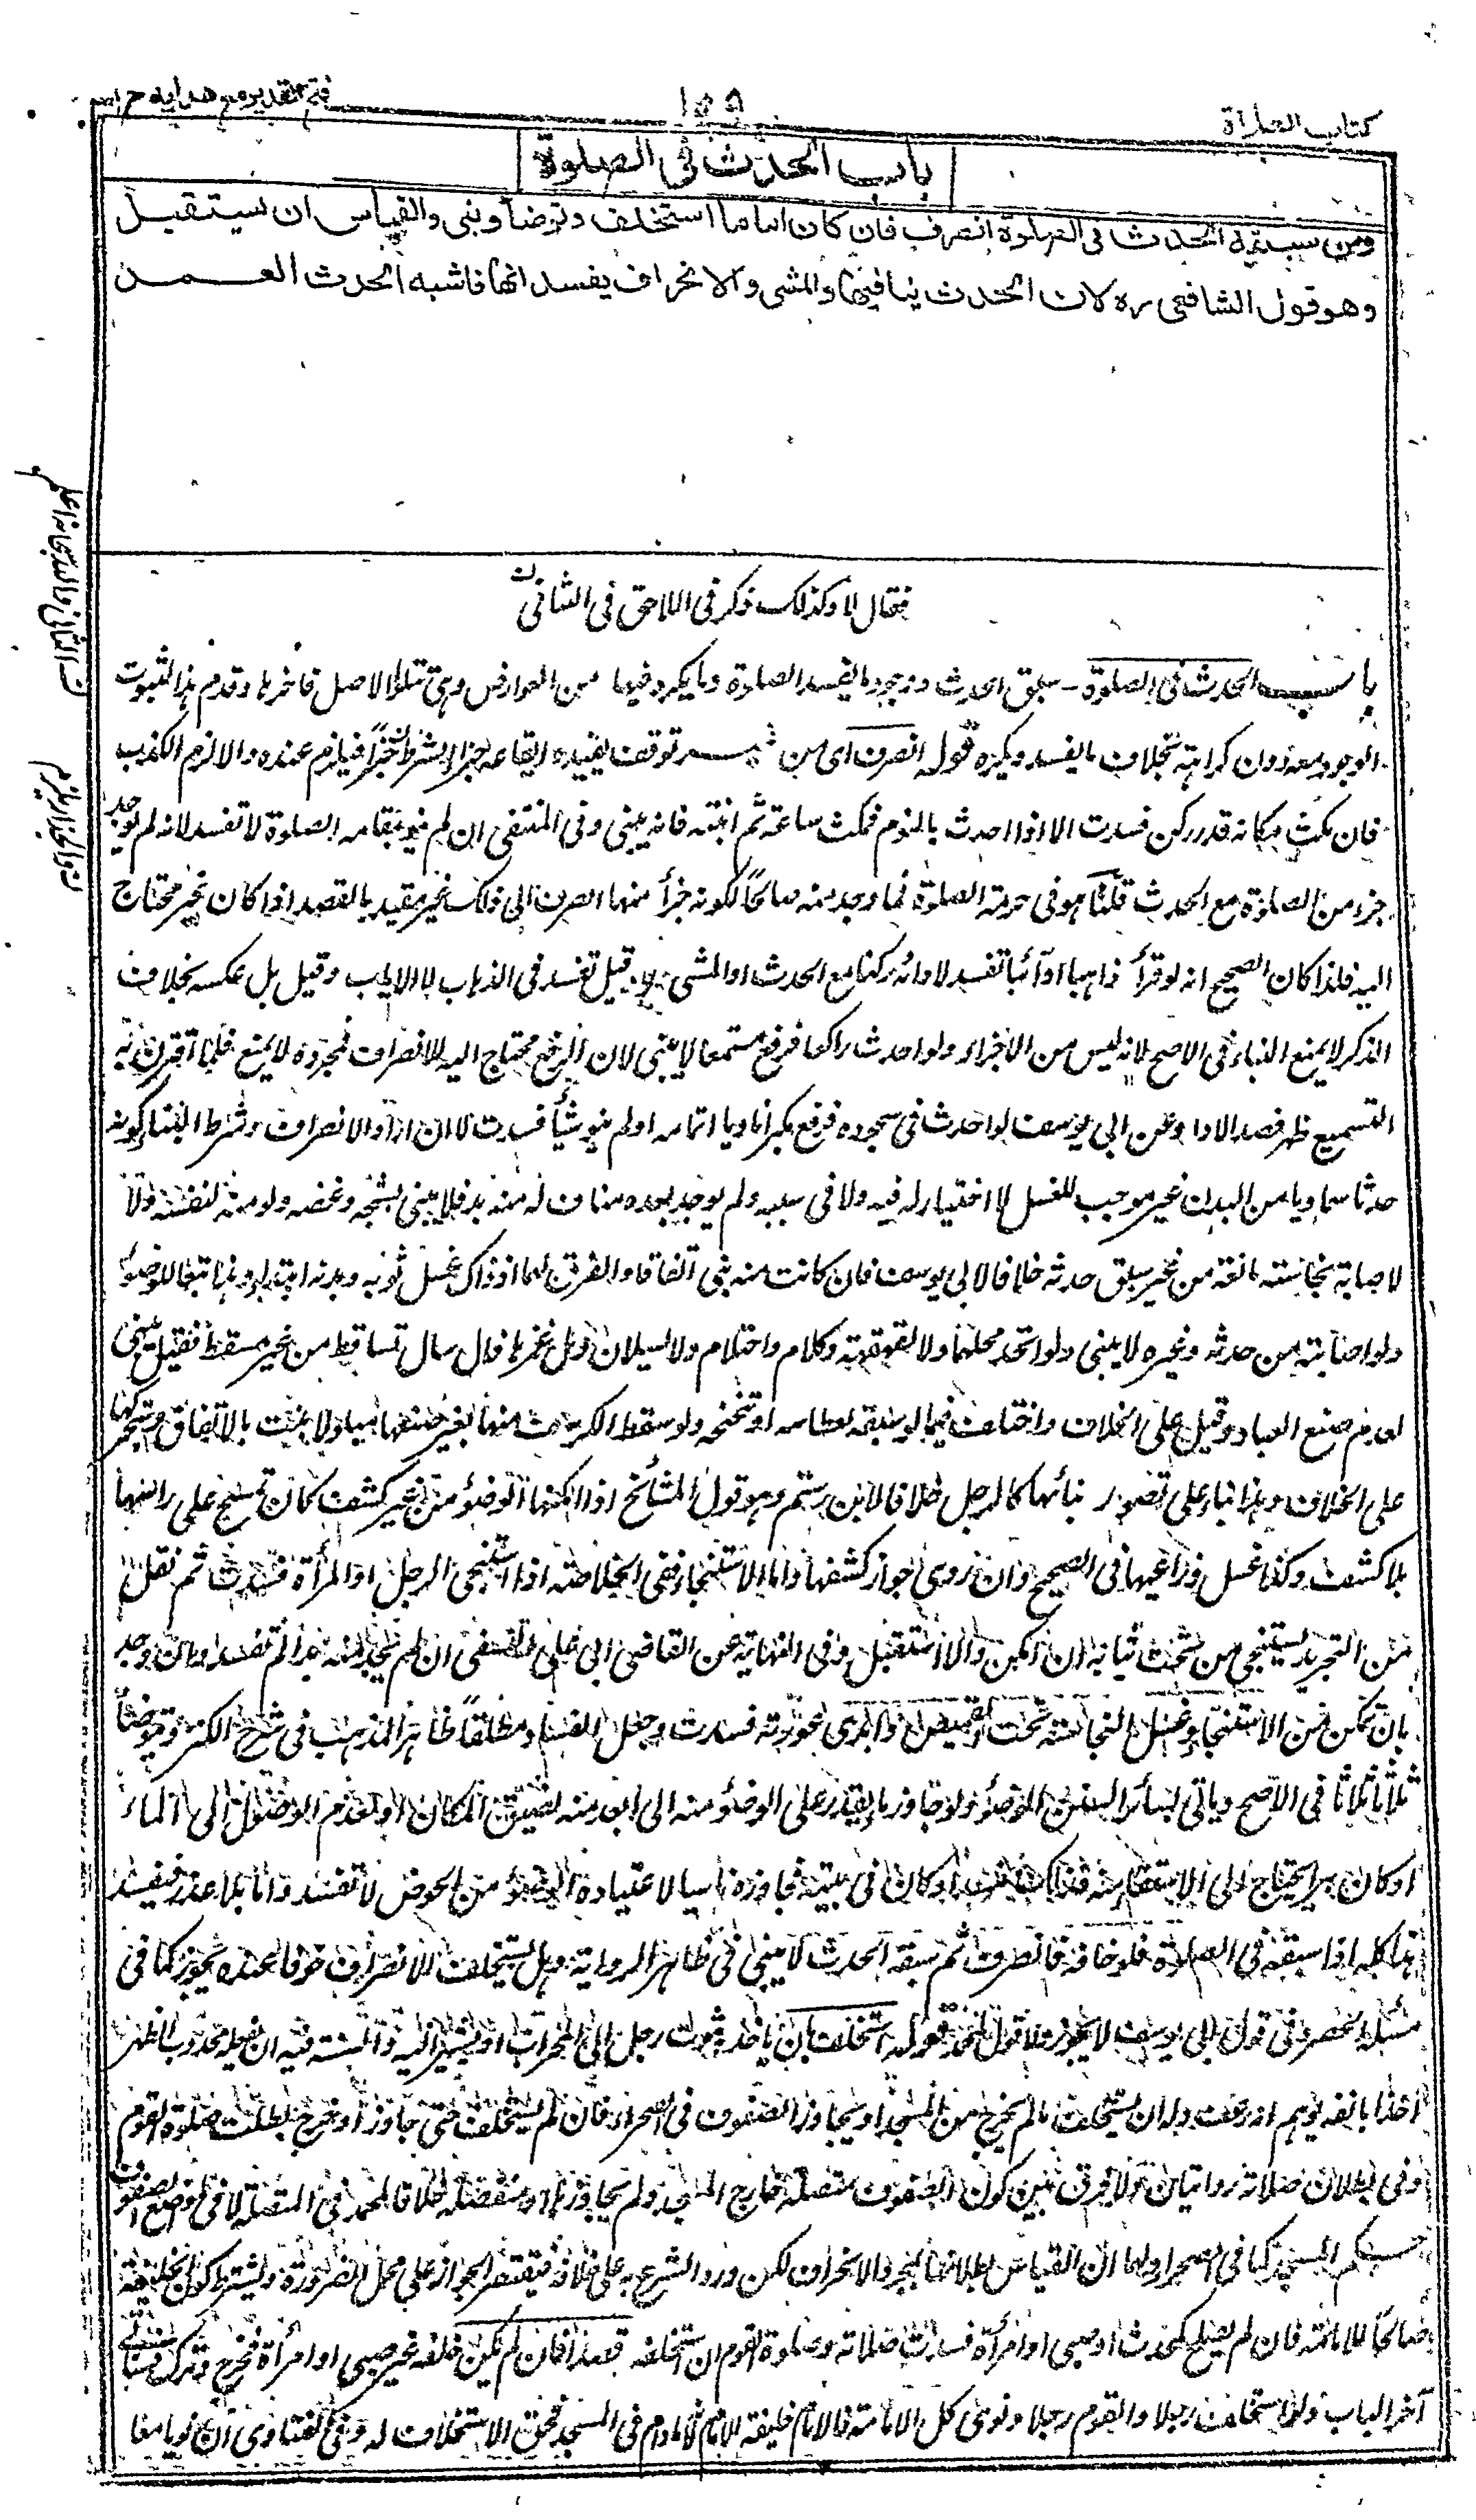 كتاب الصلاة
١٥٩
فتح القدير مع هدايه ج ١
باب الحدث في الصلوة
ومن سبقه الحدث في الصلوة انصرف فان كان اماما استخلف وتوضأ وبنى والقياس ان يستقبل
وهو قول الشافعي ره لان الحدث ينافيها والمشي والانحراف يفسد انها فاشبه الحدث العمد
فقال لا وكذلك ذكر في اللاحق في الشافي
باب الحدث في الصلوة - سبق الحدث ووجود ما يفسد الصلوة وما يكره فيها من العوارض وهي تتلو الاصل فأخرها وقدم هذا لثبوت
الوجود معه دون كراهته بخلاف ما يفسد ويكره قوله انصرف اى من توقف يفيده ايقاعه جزاء الشرط خبرًا فيلزم عنده والا لزم الكذب
فان مكث مكانه قدر ركن فسدت الا اذا احدث بالنوم فمكث ساعة ثم انتبه فانه يبنى وفى المنتقى ان لم ينو بمقامه الصلوة لا تفسد لانه لم يوجد
جزء من الصلوة مع الحدث قلنا هو فى حرمة الصلوة فما وجد منه صالحًا لكونه جزأ منها انصرف الى ذلك غير مقيد بالقصد اذا كان غير محتاج
اليه فلذا كان الصحيح انه لو قرأ ذاهبا او آئبا تفسد لادائه ركنا مع الحدث او المشى وقيل تفسد فى الذهاب لا الاياب وقيل بل عكسه بخلاف
الذكر لا يمنع البناء فى الاصح لانه ليس من الاجزاء ولو احدث راكعا فرفع مستمعا لا يبنى لان الرفع محتاج اليه للانصراف فمجرده لا يمنع فلما اقترن به
التسميع ظهر قصد الادا وعن ابى يوسف لو احدث فى سجوده فرفع مكبرا ناويا اتمامه او لم ينو شيأ فسدت لا ان اراد الانصراف وشرط البناء كونه
حدثا سماويا من البدن غير موجب للغسل لا اختيار له فيه ولا فى سببه ولم يوجد بعده مناف له منه بد فلا يبنى بشجة وعضه ولو منه لنفسه ولا
لاصابة نجاسته مانعة من غير سبق حدثه خلافا لابى يوسف فان كانت منه بنى اتفاقا والفرق لهما ان ذاك غسل ثوبه وبدنه ابتداء وهذا تبعا للوضوء
ولو اصابته من حدثه وغيره لا يبنى ولو اتحد محلهما ولا لقهقهة وكلام واحتلام ولا لسيلان دمل غمزها فان سال تساقط من غير مسقط فقيل يبنى
لعدم صنع العباد وقيل على الخلاف واختلف فيما لو سبقه لعطاسه او تنحنحه ولو سقط الكرسف منها بغير صنعها مبلولا بنت بالاتفاق وبتحريكها
على الخلاف وهذا بناء على تصور بنائها كالرجل خلافا لابن رستم وهو قول المشائخ اذا امكنها الوضوء من غير كشف كأن تمسح على راسها
بلا كشف وكذا غسل ذراعيها فى الصحيح وان روى جواز كشفها واما الاستنجاء ففى الخلاصة اذا استنجى الرجل او المرأة فسدت ثم نقل
من التجريد يستنجى من تحت ثيابه ان امكن والا استقبل وفى النهاية عن القاضى ابى على النسفى ان لم يجد منه بدا لم تفسد وان وجد
بان تمكن من الاستنجاء وغسل النجاسة تحت القميص وابدى عورته فسدت وجعل الفساد مطلقًا ظاهر المذهب فى شرح الكنز ويتوضأ
ثلاثا ثلاثا فى الاصح وياتى بسائر السنن للوضوء ولو جاوز ما يقدر على الوضوء منه الى ابعد منه لضيق المكان او لعدم الوصول الى الماء
او كان بيرا يحتاج الى الاستقاء منه فذاك مفسد او كان فى بيته فجاوزه ناسيا لاعتياده الوضوء من الحوض لا تفسد واما بلا عذر فيفسد
هذا كله اذا سبقه فى الصلوة فلو خافه فانصرف ثم سبقه الحدث لا يبنى فى ظاهر الرواية وهل يستخلف للانصراف خوفا عنده يجوز كما فى
مسئلة الحصر وفى قول ابى يوسف لا يجوز ولا قول لمحمد قوله استخلف بان ياخذ بثوب رجل الى المحراب او يشير اليه والسنة فيه ان يفعله محدوب الظهر
اخذا بانفه يوهم انه رعف وله ان يستخلف مالم يخرج من المسجد او يجاوز الصفوف فى الصحراء فان لم يستخلف حتى جاوز او خرج بطلت صلوة القوم
وفى بطلان صلاته روايتان ولا فرق بين كون الصفوف متصلة خارج المسجد ولم يجاوزها او منفصلة خلافا لمحمد فى المتصلة لان لمواضع الصفوف
حكم المسجد كما فى الصحراء ولهما ان القياس بطلانها بمجرد الانحراف لكن ورد الشرع به على خلافه فيقتصر الجواز على محل الضرورة ويشترط كون الخليفة
صالحًا للامامة فان لم يصلح كمحدث او صبى او امرأة فسدت صلاته وصلوة القوم ان استخلفه قصدا فان لم يكن خلفه غير صبى او امرأة فخرج وترك فسيأتى
آخر الباب ولو استخلف رجلا والقوم رجلا ونوى كل الامامة فالامام خليفة الامام لانه مادام فى المسجد فحق الاستخلاف له وفى الفتاوى ان نويا معا